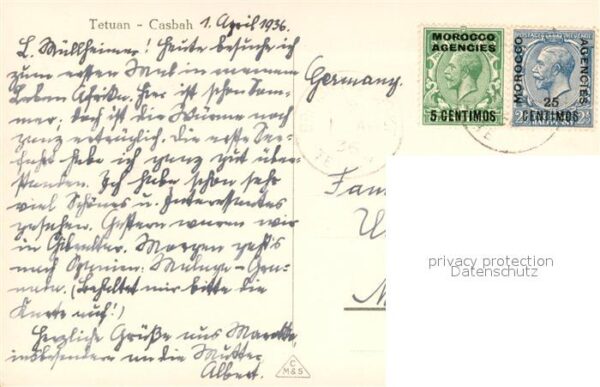 Tetuan - Casbah 1. April 1936.
L. Müllheimer! Heute besuche ich
zum ersten Mal in meinem
Leben Afrika. Hier ist schon Som-
mer; doch ist die Wärme noch
ganz erträglich. Die erste See-
fahrt habe ich ganz gut über-
standen. Ich habe schon sehr
viel Schönes u. Interessantes
gesehen. Gestern waren wir
in Gibraltar. Morgen geht's
nach Spanien: Malaga-Gra-
nada. (Behaltet mir bitte die
Karte auf!)
Herzliche Grüße aus Marokko
insbesondere an die Mutter
Albert.
Germany.
MOROCCO
AGENCIES
5 CENTIMOS
MOROCCO
AGENCIES
25
CENTIMOS
Fam
M
privacy protection
Datenschutz
C
M&S